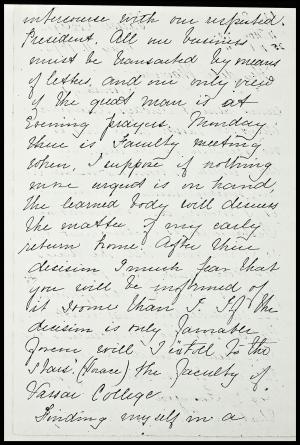 intercourse with our respected
President. All our business
must be transacted by means
of letters, and our only view
of the great man is at
Evening prayers. Monday
there is Faculty meeting
when, I suppose if nothing
more urgent is on hand,
the learned body will discuss
the matter of my early
return home. After their
decision I much fear that
you will be informed of
it sooner than I. If the
decision is only favorable
forever will I extol to the
stars. (Grace) the faculty of
Vassar College
Finding myself in a